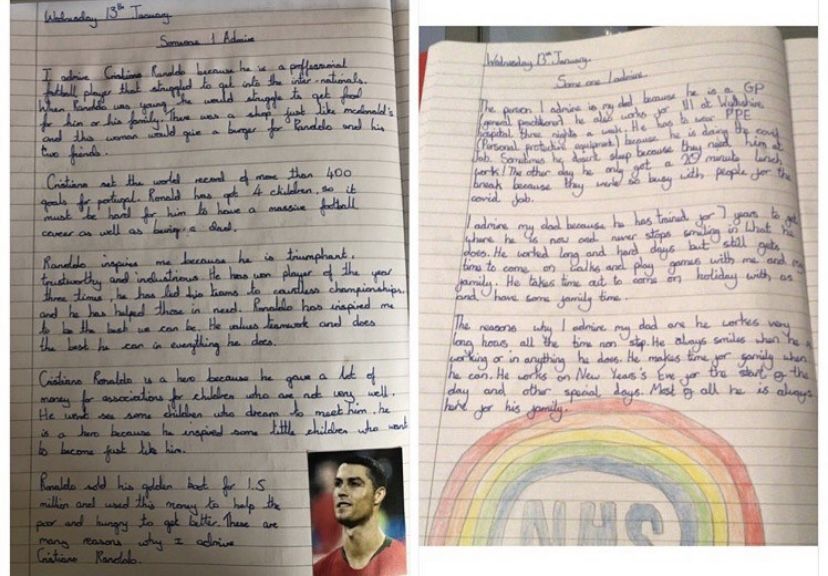 Wednesday 13th January
Someone I Admire
I admire Cristiano Ronaldo because he is a proffessional
football player that struggled to get into the inter-nationals.
When Ronaldo was young, he would struggle to get food
for him or his family. There was a shop just like mcdonald's
and this woman would give a burger for Ronaldo and his
two friends.
Cristiano set the world record of more than 400
goals for portugal. Ronald has got 4 children, so it
must be hard for him to have a massive football
career as well as being a dad.
Ronaldo inspires me because he is triumphant,
trustworthy and industrious. He has won player of the year
three times, he has led his teams to countless championships,
and he has helped those in need. Ronaldo has inspired me
to be the best we can be. He values teamwork and does
the best he can in everything he does.
Cristiano Ronaldo is a hero because he gave a lot of
money for associations for children who are not very well.
He went see some children who dream to meet him, he
is a hero because he inspired some little children who want
to become just like him.
Ronaldo sold his golden boot for 1.5
million and used this money to help the
poor and hungry to get better. These are
many reasons why I admire
Cristiano Ronaldo.
Wednesday 13th January.
Some one I admire
The person I admire is my dad because he is a GP
(general practitioner) he also works for 111 at Wythshire
hospital three nights a week. He has to wear PPE
(Personal protective equipment) because he is doing the covid
Job. Sometimes he dosn't sleep because they need him at
work! The other day he only got a 20 minute lunch
break because they were so busy with people for the
covid job.
I admire my dad because he has trained for 7 years to get
where he is now and never stops smiling in what he
does. He worked long and hard days but still gets
time to come on walks and play games with me and my
family. He takes time out to come on holiday with us
and have some family time.
The reasons why I admire my dad are he workes very
long hours all the time non stop. He always smiles when he
working or in anything he does. He makes time for family when
he can. He works on New Years's Eve for the start of the
day and other special days. Most of all he is always
here for his family.
NHS